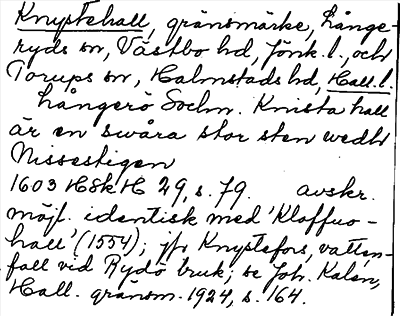 Knystehall, gränsmärke, Långe-
ryds sn, Västbo hd, Jönk. l., och
Torups sn, Halmstads hd, Hall. l.
Långerö Sochn. Knista hall
är en swåra stor sten wedh
Nissestigen
1603 HSkH 29, s. 79. avskr.
möjl. identisk med 'Kloffuo-
hall' (1554); jfr Knystefors, vatten-
fall vid Rydö bruk; se Joh. Kalén,
Hall. gränsm. 1924, s. 164.